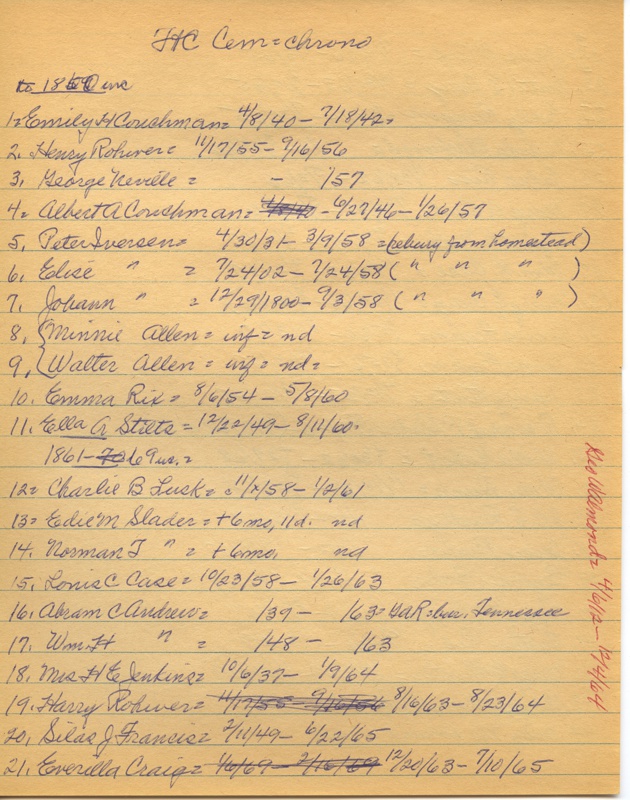 HC Cem = chrono
to 1860 inc
1= Emily H Couchman = 4/8/40 - 7/18/42 =
2. Henry Rohwer = 11/17/55 - 9/16/56
3, George Neville = - /57
4= Albert A Couchman = - 6/27/46 - 1/26/57
5, Peter Iversen = 4/30/31 - 3/9/58 = (rebury from homestead)
6. Elise " = 7/24/02 - 7/24/58 ( " " " )
7. Johann " = 12/29/1800 - 9/3/58 ( " " " )
8, { Minnie Allen = inf = nd
9, { Walter Allen = inf = nd =
10. Emma Rix = 8/6/54 - 5/8/60
11. Ella A Stilts = 12/22/49 - 8/11/60.
1861 - 70 69 inc. =
12= Charlie B Lusk = 11/ /58 - 1/2/61
13= Edie M Slader = + 6mo, 11d. nd
14. Norman T " = + 6mo, nd
15. Louis C Case = 10/23/58 - 1/26/63
16, Abram C Andrew = /39 - /63 = bur. Tennessee
17. Wm. H " = /48 - /63
18. Mrs H E Jenkins = 10/6/37 - 1/9/64
19. Harry Rohwer = 11/17/55 - 9/16/56 8/16/63 - 8/23/64
20, Silas J Francis = 2/11/49 - 6/22/65
21. Everilla Craig = 1/6/69 - 2/16/69 12/20/63 - 7/10/65
Geo Walmond = 4/6/12 - 12/4/64